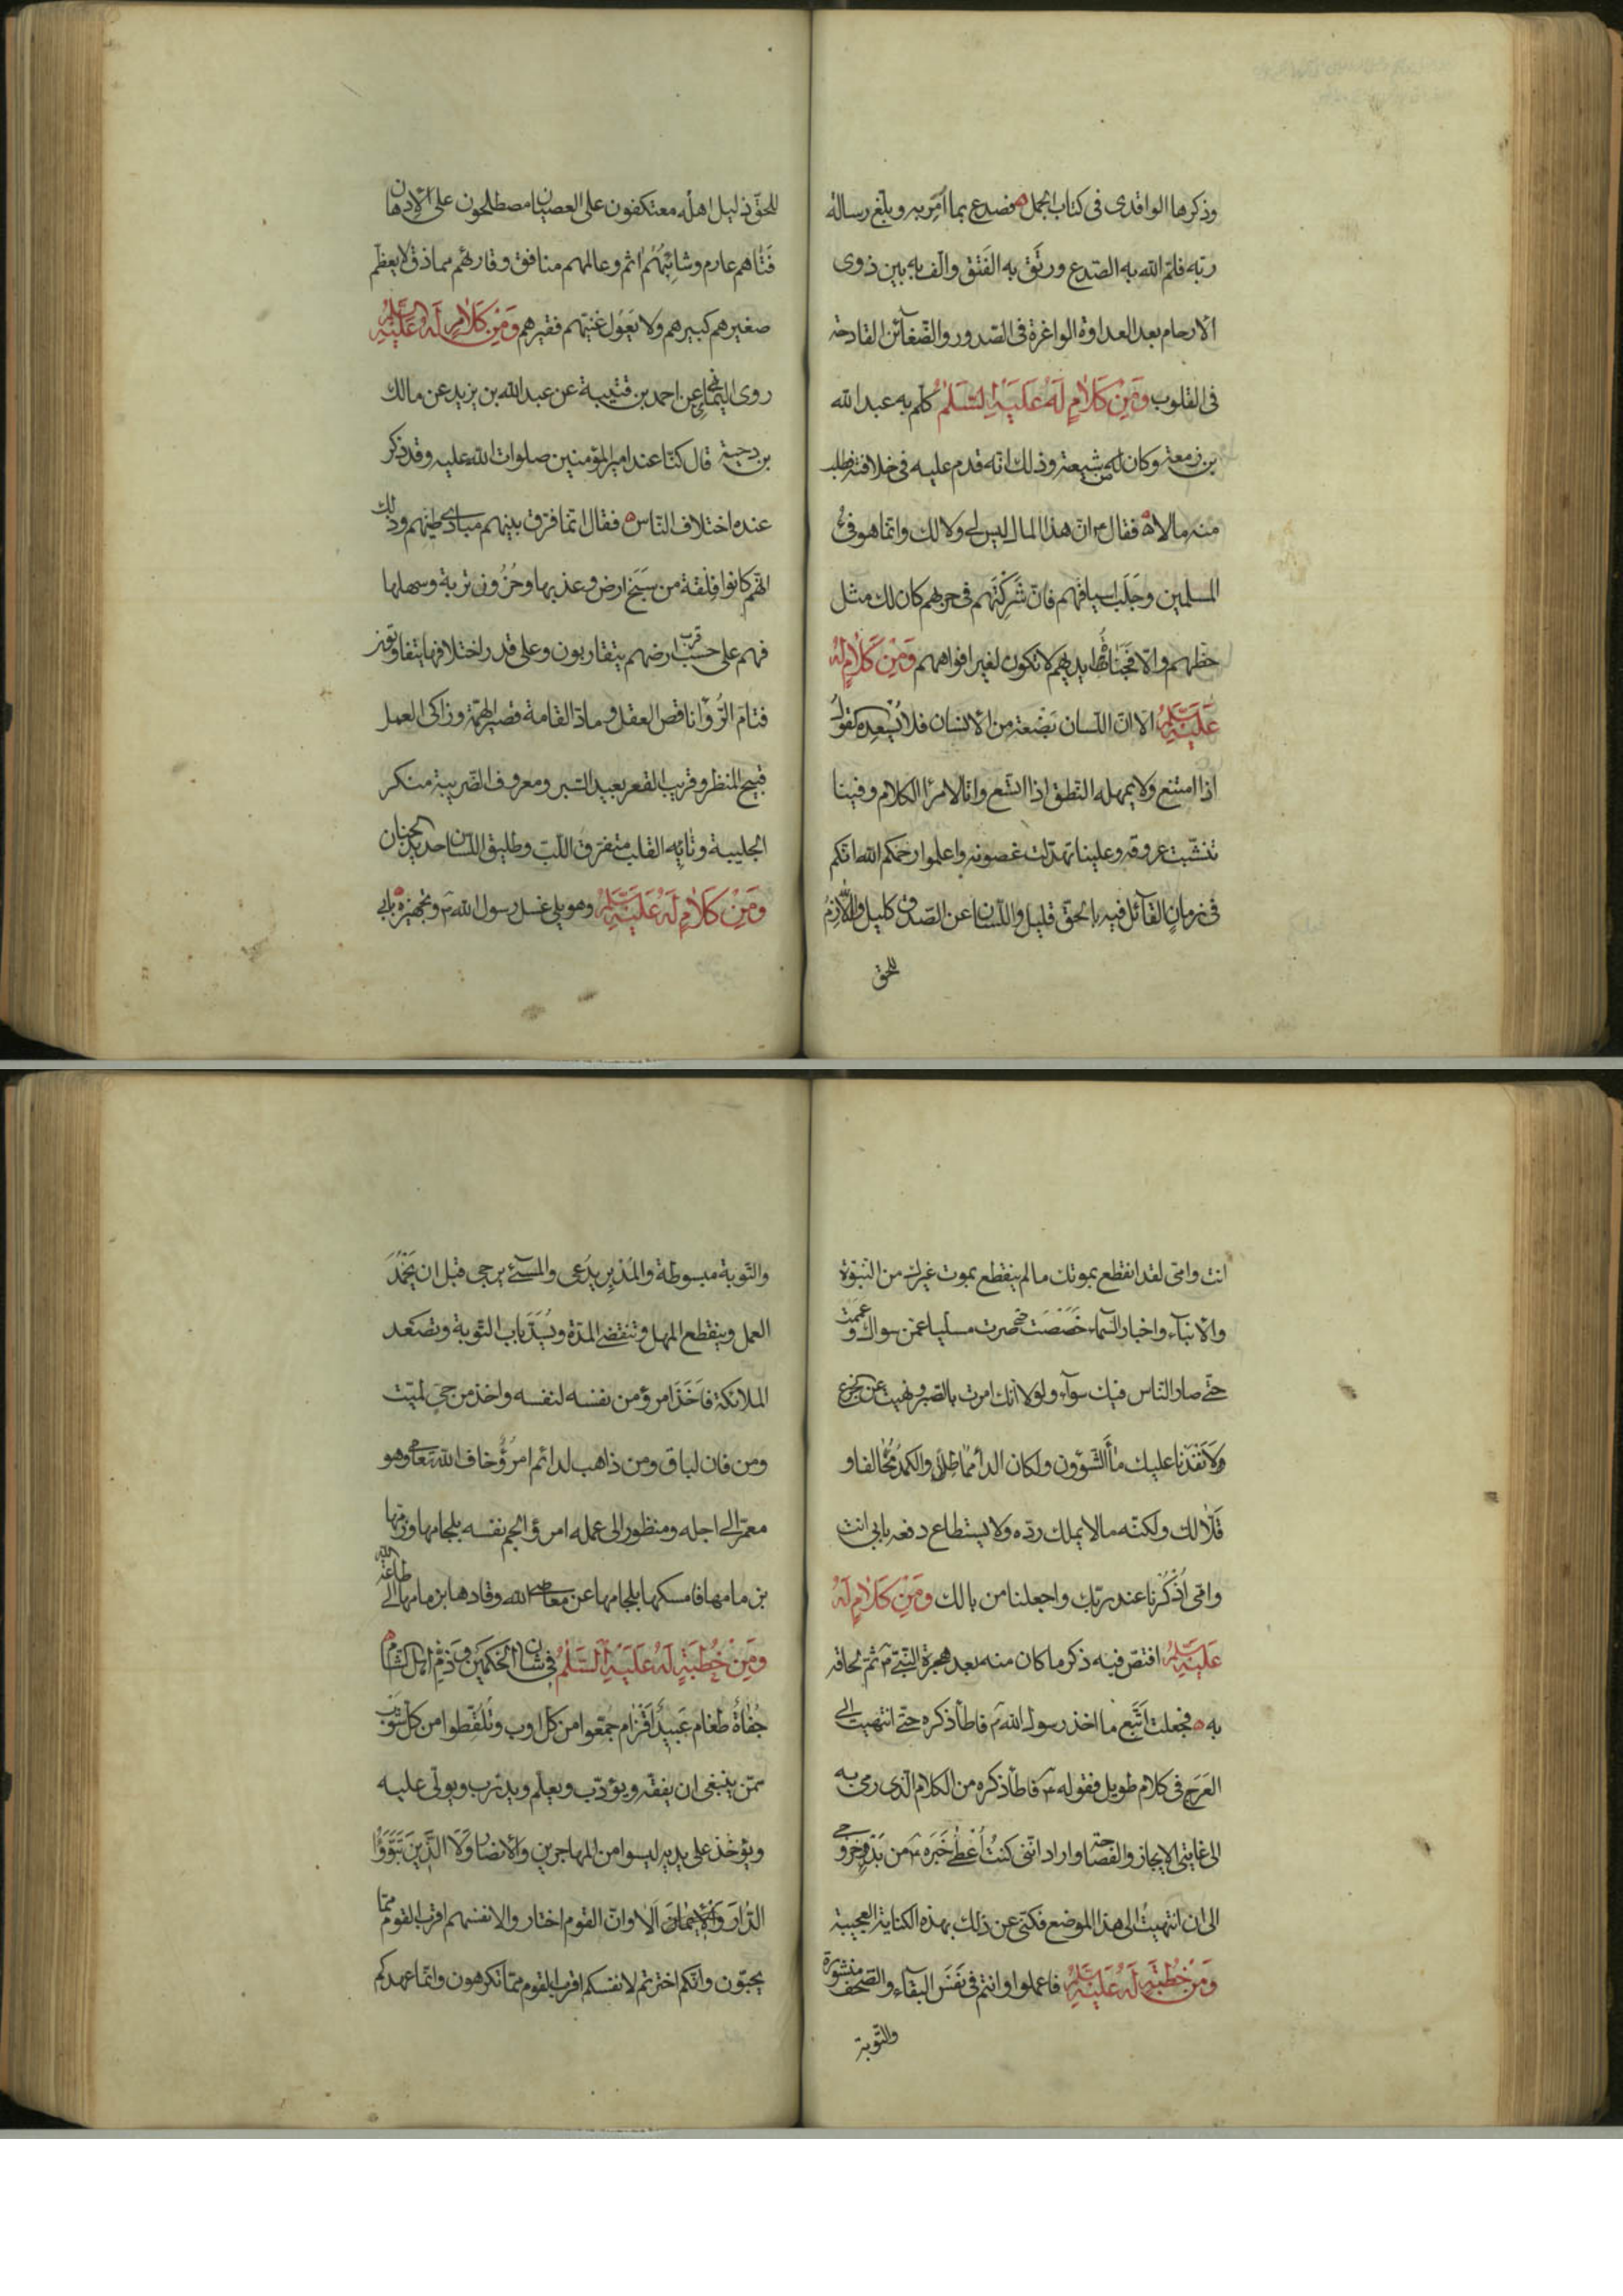 وذكرها الواقدى فى كتاب الجمل فصدع بما اُمِر به وبلّغ رسالة
ربّه فلمّ الله به الصّدع ورتَق به الفَتق والّف به بين ذوى
الارحام بعد العداوة الواغرة فى الصّدور والضّغآئن القادحة
فى القلوب وَمِنْ كَلَامٍ لَهُ عَلَيْهِ السَّلَمُ كلّم به عبد الله
بن زمعة وكان من شيعته وذلك انّه قدم عليه فى خلافته فطلب
منه مالا فقال ع انّ هذا المال ليس لى ولا لك وانّما هو فىء
المسلمين وجَلَب اسيافهم فان شَرِكْتَهم فى حربهم كان لك مثل
حظّهم والّا فجَناة ايديهم لا تكون لغير افواههم وَمِنْ كَلَامٍ لَهُ
عَلَيْهِ السَّلَمُ الا انّ اللّسان بَضْعة من الانسان فلا يُسْعِده القول
اذا امتنع ولا يمهله النّطق اذا اتّسع وانّا لامرآ الكلام وفينا
تنشّبت عروقه وعلينا تهدّلت غصونه واعلموا رحمكم الله انّكم
فى زمانٍ القآئل فيه بالحقّ قليل واللّسان عن الصّدق كليل واللّازم
للحق
للحقّ ذليل اهله معتكفون على العصيان مصطلحون على الادهان
فَتَاهم عارم وشائبُهُم اثم وعالمهم منافق وقارئهم مماذق لا يعظّم
صغيرهم كبيرهم ولا يَعُول غنيّهم فقيرهم وَمِنْ كَلَامٍ لَهُ عَلَيْهِ السَّلَمُ
روى اليمانى عن احمد بن قتيبة عن عبد الله بن يزيد عن مالك
بن دحية قال كنّا عند امير المؤمنين صلوات الله عليه وقد ذكر
عنده اختلاف النّاس فقال انّما فرّق بينهم مبادى طينهم وذلك
انّهم كانوا فِلْقة من سَبَخ ارض وعذبها وحُزُون تربة وسهلها
فهم على حسب قرب ارضهم يتقاربون وعلى قدر اختلافها يتفاوتون
فتامّ الرُّوآ ناقص العقل ومادّ القامة قصير الهمّة وزاكى العمل
قبيح المنظر وقريب القعر بعيد السّبر ومعروف الضّريبة منكر
الجليبة وتائه القلب متفرّق اللّبّ وطليق اللّسان حديد الجنان
وَمِنْ كَلَامٍ لَهُ عَلَيْهِ السَّلَمُ وهو يلى غسل رسول الله ص وتجهيزه بابى
انت وامّى لقد انقطع بموتك ما لم ينقطع بموت غيرك من النّبوّة
والانبآء واخبار السّمآء خَصَّصْت حتّى صرت مسلّيا عمّن سواك وعَمَّمْتَ
حتّى صار النّاس فيك سوآء ولولا انّك امرت بالصّبر ونهيت عن الجزع
لاَنْفَدْنا عليك مآء الشّؤون ولكان الدآء مماطلاً والكمد مُحالفا و
قَلّا لك ولكنّه ما لا يملك ردّه ولا يستطاع دفعه بابى انت
وامّى اُذْكُرْنا عند ربّك واجعلنا من بالك وَمِنْ كَلَامٍ لَهُ
عَلَيْهِ السَّلَمُ اقتصّ فيه ذكر ما كان منه بعد هجرة النّبىّ ص ثمّ لحاقه
به فجعلت اَتّبع ما اخذ رسول الله ص فاطأ ذكره حتّى انتهيت الى
العَرَج فى كلام طويل فقوله ع فاطأ ذكره من الكلام الّذى رمى به
الى غايتى الايجاز والفصاحة واراد انّنى كنتُ اُعْطى خَبَرَه ص من بَدْو خروجى
الى ان انتهيتُ الى هذا الموضع فكنى عن ذلك بهذه الكناية العجيبة
وَمِنْ خُطْبَةٍ لَهُ عَلَيْهِ السَّلَمُ فاعملوا وانتم فى نَفَسِ البقآء والصّحف منشورة
والتّوبة
والتّوبة مبسوطة والمُدْبِر يُدْعى والمسىء يرجى قبل ان يَخْمُدَ
العمل وينقطع المهل وتنقضى المدّة ويُسَدّ باب التّوبة وتصعد
الملائكة فاَخَذَ امرؤ من نفسه لنفسه واخذ من حىّ لميّت
ومن فان لباق ومن ذاهب لدائم امرؤٌ خاف الله تعالى وهو
معمّر الى اجله ومنظور الى عمله امرؤ الجم نفسه بلجامها وزمّها
بزمامها فامسكها بلجامها عن معاصى الله وقادها بزمامها الى طاعة الله
وَمِنْ خُطْبَةٍ لَهُ عَلَيْهِ السَّلَمُ فى شان الحَكَمَين وذمّ اهل الشّام
جُفاةٌ طَغام عَبيدٌ اَقْزام جُمّعوا من كلّ اوب وتُلُقِّطوا من كلّ شَوْب
ممّن ينبغى ان يفقّه ويؤدّب ويعلّم ويدرّب ويولّى عليه
ويؤخذ على يديه ليسوا من المهاجرين والانصار وَلَا الَّذِينَ تَبَوَّؤُا
الدَّارَ وَالاِيمَانَ اَلا وانّ القوم اختاروا لانفسهم اقرب القوم ممّا
يحبّون وانّكم اخترتم لانفسكم اقرب القوم ممّا تكرهون وانّما عهدكم